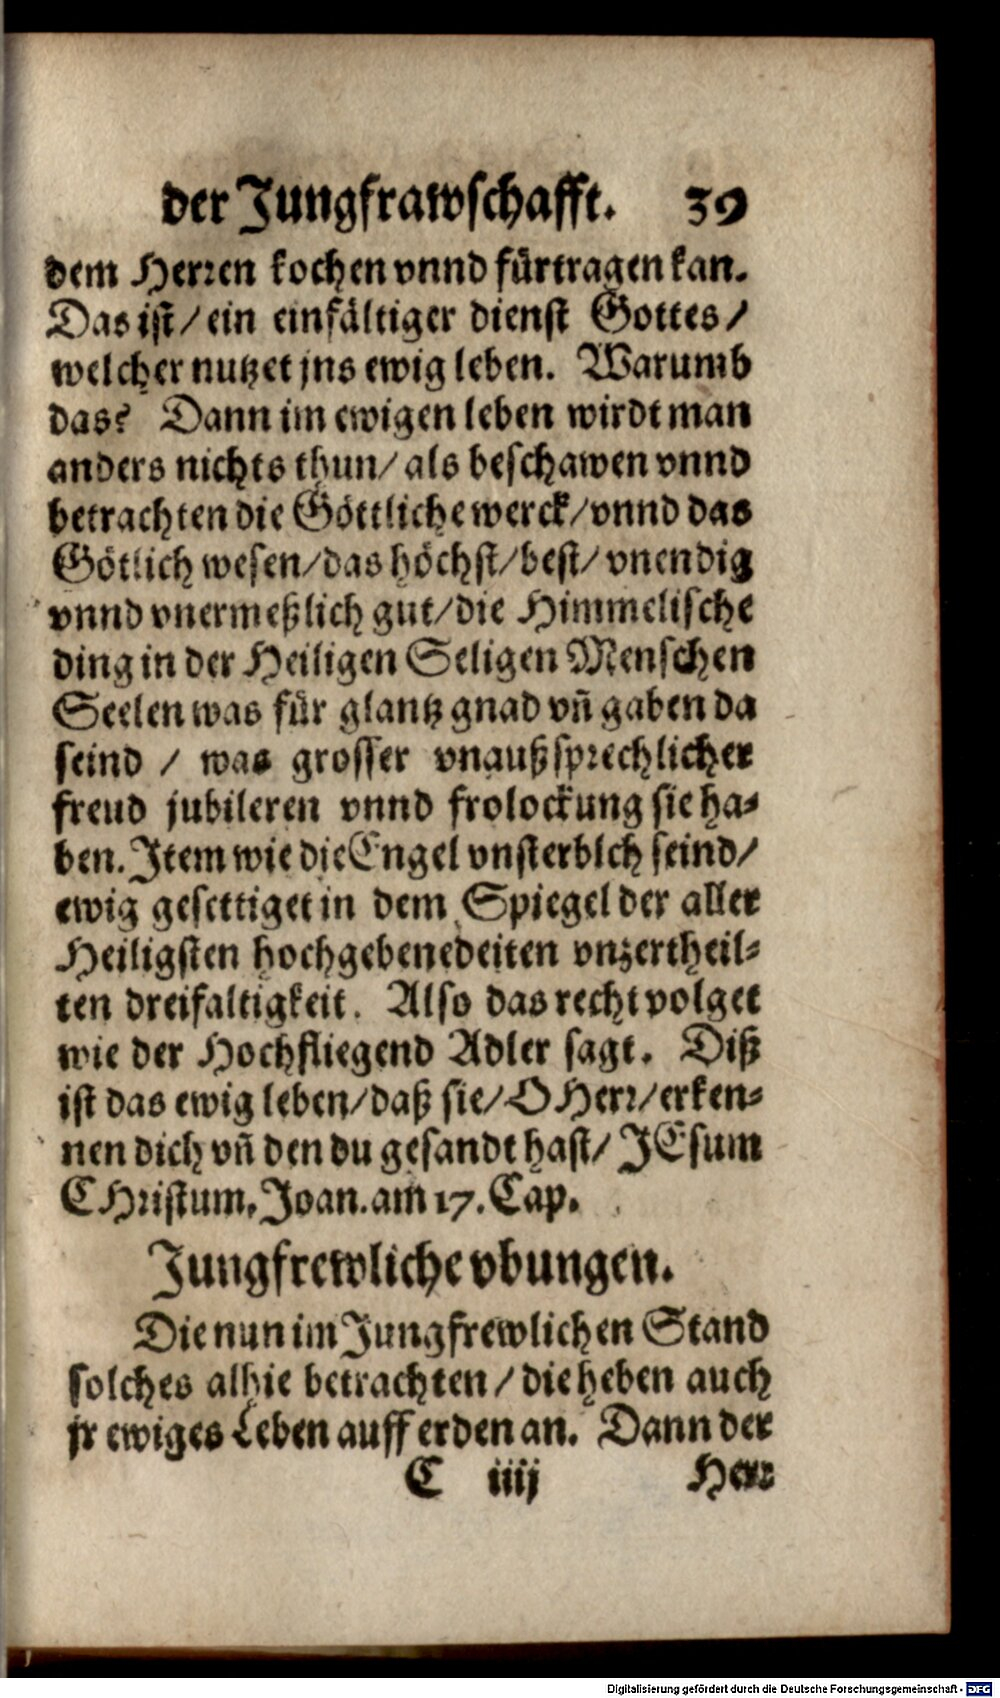 der Jungfrawschafft. 39
dem Herren kochen vnnd fürtragen kan.
Das ist / ein einfältiger dienst Gottes /
welcher nutzet jns ewig leben. Warumb
das? Dann im ewigen leben wirdt man
anders nichts thun / als beschawen vnnd
betrachten die Göttliche werck / vnnd das
Götlich wesen / das höchst / best / vnendig
vnnd vnermeßlich gut / die Himmelische
ding in der Heiligen Seligen Menschen
Seelen was für glantz gnad vñ gaben da
seind / was grosser vnaußsprechlicher
freud jubileren vnnd frolockung sie ha⸗
ben. Item wie die Engel vnsterblch seind /
ewig gesettiget in dem Spiegel der aller
Heiligsten hochgebenedeiten vnzertheil⸗
ten dreifaltigkeit. Also das recht volget
wie der Hochfliegend Adler sagt. Diß
ist das ewig leben / daß sie / O Herr / erken⸗
nen dich vñ den du gesandt hast / JEsum
CHristum, Joan. am 17. Cap.
Jungfrewliche vbungen.
Die nun im Jungfrewlichen Stand
solches alhie betrachten / die heben auch
jr ewiges Leben auff erden an. Dann der
C iiij Herr
Digitalisierung gefördert durch die Deutsche Forschungsgemeinschaft - DFG